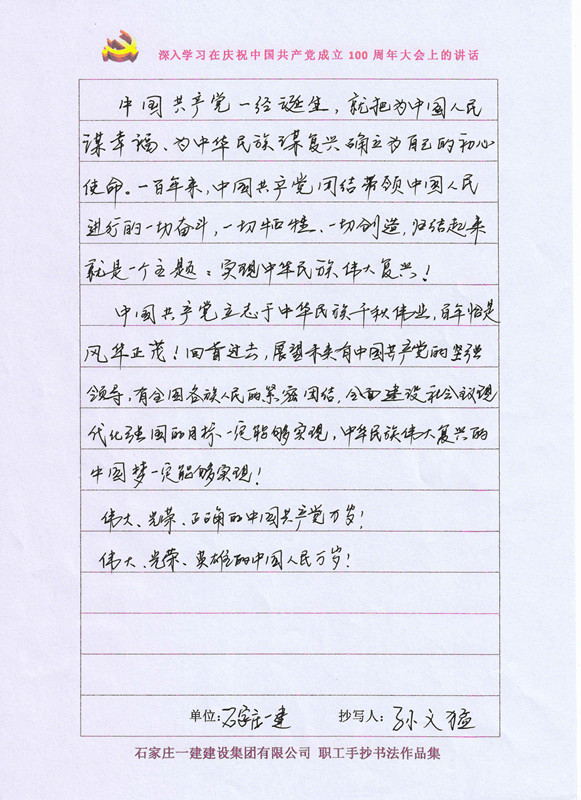 深入学习在庆祝中国共产党成立100周年大会上的讲话
中国共产党一经诞生，就把为中国人民
谋幸福、为中华民族谋复兴确立为自己的初心
使命。一百年来，中国共产党团结带领中国人民
进行的一切奋斗，一切牺牲、一切创造，归结起来
就是一个主题：实现中华民族伟大复兴！
中国共产党立志于中华民族千秋伟业，百年恰是
风华正茂！回首过去，展望未来有中国共产党的坚强
领导，有全国各族人民的紧密团结，全面建设社会义现
代化强国的目标一定能够实现，中华民族伟大复兴的
中国梦一定能够实现！
伟大、光荣、正确的中国共产党万岁！
伟大、光荣、英雄的中国人民万岁！
单位：石家庄一建 抄写人：孙文猛
石家庄一建建设集团有限公司 职工手抄书法作品集